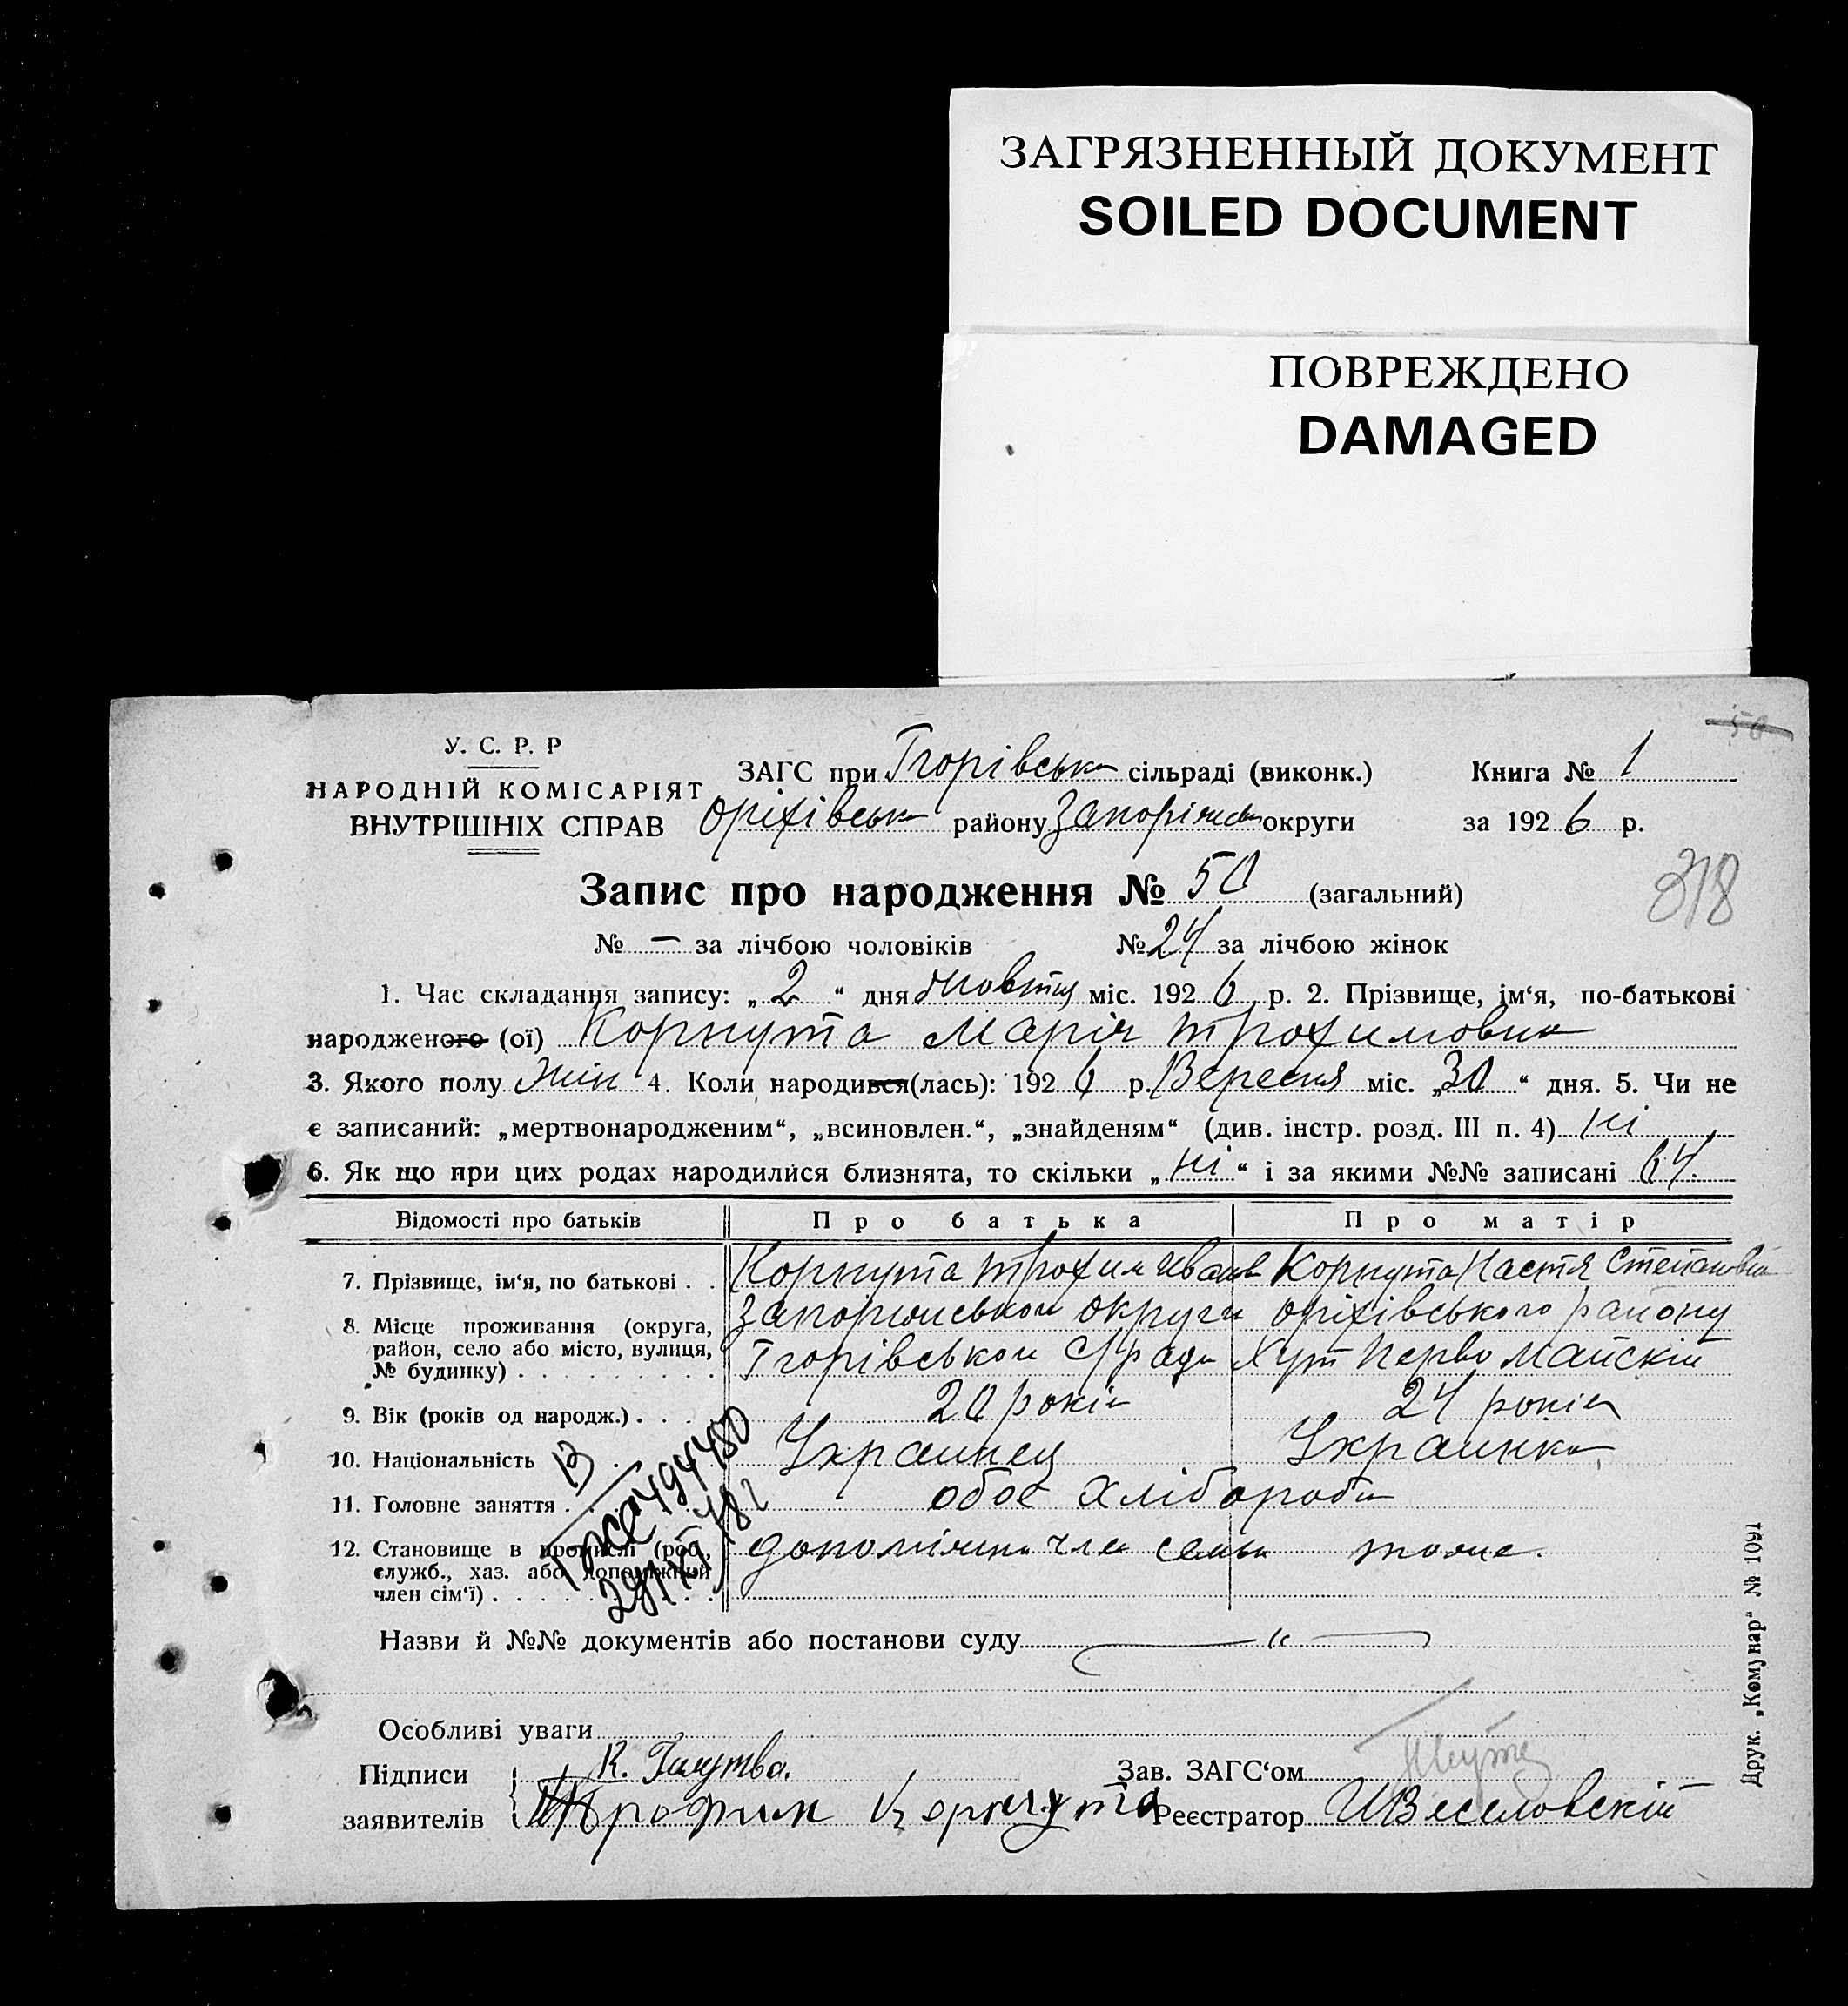 ЗАГРЯЗНЕННЫЙ ДОКУМЕНТ
SOILED DOCUMENT
ПОВРЕЖДЕНО
DAMAGED
50
У. С. Р. Р
НАРОДНІЙ КОМІСАРІЯТ
ВНУТРІШНІХ СПРАВ
ЗАГС при Ігорівськ сільраді (виконк.) Книга № 1
Оріхівськ району Запоріжськ округи за 1926 р.
318
Запис про народження № 50 (загальний)
№ — за лічбою чоловіків № 24 за лічбою жінок
1. Час складання запису: „2“ дня жовтня міс. 1926 р. 2. Прізвище, ім‘я, по-батькові
народженого (ої) Корнута Марія Трохимовна
3. Якого полу жін 4. Коли народився(лась): 1926 р. Вересня міс. „30“ дня. 5. Чи не
є записаний: „мертвонародженим“, „всиновлен.“, „знайденям“ (див. інстр. розд. III п. 4) ні
6. Як що при цих родах народилися близнята, то скільки „ні“ і за якими №№ записані
Відомості про батьків Про батька Про матір
7. Прізвище, ім‘я, по батькові . . Корнута Трохим Иванов Корнута Настя Степановна
8. Місце проживання (округа, район, село або місто, вулиця, № будинку) . . . . . . . . . Запоріжської округи Оріхівського району
Ігорівської с/ради Хут Первомайский
9. Вік (років од народж.) . . . 20 років 24 років
10. Національність Украинец Украинка
11. Головне заняття . обоє хлібороби
12. Становище в промислі (роб., служб., хаз. або допоміжний член сім‘ї) . . . . . допоміжни член семьи тоже.
494480
Назви й №№ документів або постанови суду — " —
Особливі уваги
Підписи заявителів
К. Галутва.
Трофим Корнута
Зав. ЗАГС‘ом
Реєстратор ИВеселовскій
Друк. „Комунар“ № 1091